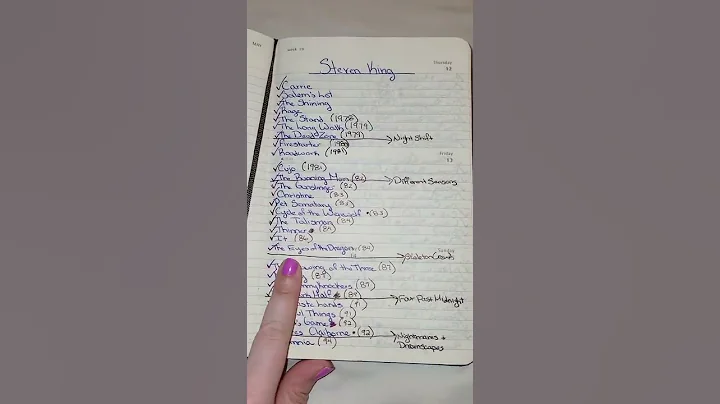 week 10
Thursday
12
Steven King
✓Carrie
✓Salem's Lot
✓The Shining
✓Rage
✓The Stand (1978)
✓The Long Walk (1979)
✓The Dead Zone (1979) → Night Shift
✓Firestarter
✓Roadwork (1981)
Friday
13
✓Cujo (1981)
✓The Running Man (82) → Different Seasons
✓The Gunslinger (82)
✓Christine (83)
✓Pet Sematary (83)
✓Cycle of the Werewolf • (83)
✓The Talisman (84)
✓Thinner (84)
✓It (86)
✓The Eyes of the Dragon (86)
Sunday
→ Skeleton Crew
wing of the Three (87)
mmyknockers (87)
Half (89) → Four Past Midnight
Lands (91)
ul Things (91)
's Game (92)
es Claiborne • (92) → Nightmares + Dreamscapes
mnia (94)